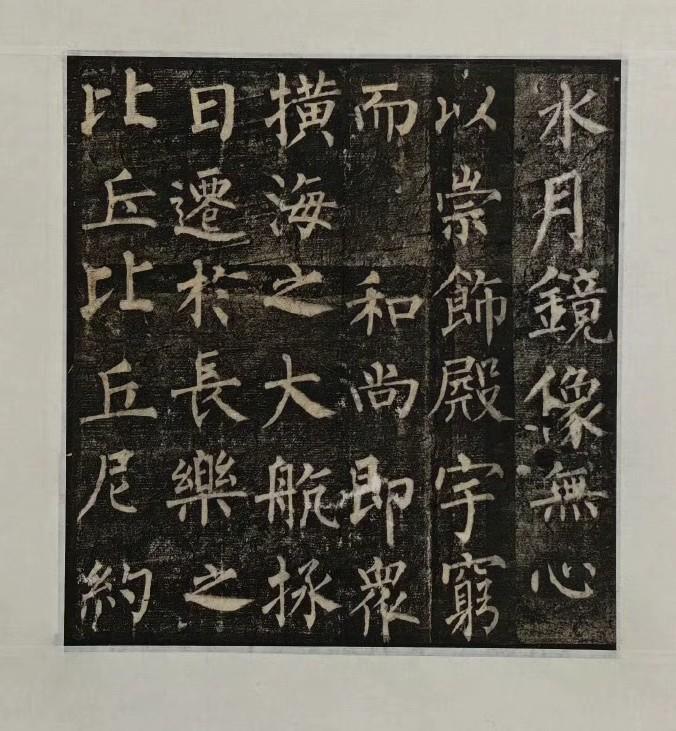 水月鏡像無心
以崇飾殿宇窮
而 和尚即衆
撗海之大航拯
日遷於長樂之
比丘比丘尼約